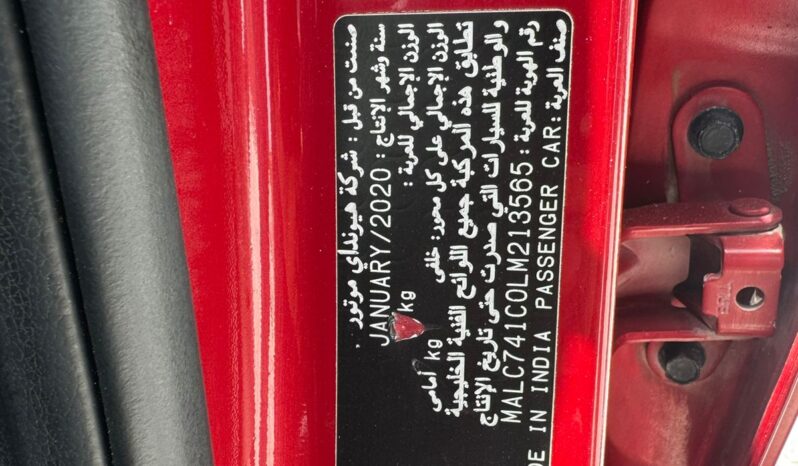 صنعت من قبل : شركة هيونداي موتور .
سنة وشهر الإنتاج : JANUARY/2020
الوزن الإجمالي للعربة : kg
الوزن الإجمالي على كل محور: خلفى kg أمامى
تطابق هذه المركبة جميع اللوائح الفنية الخليجية
والوطنية للسيارات التي صدرت حتى تاريخ الإنتاج
رقم الهوية للعربة : MALC741C0LM213565
صنف العربة: PASSENGER CAR DE IN INDIA